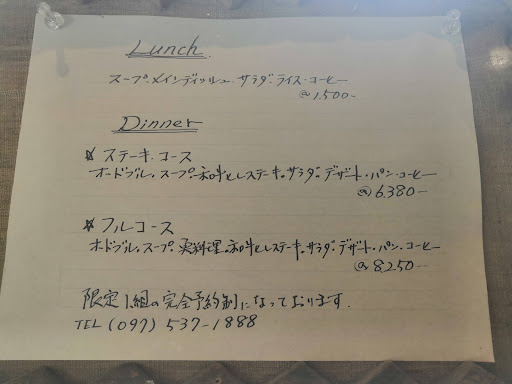 Lunch
スープ・メインディッシュ・サラダ・ライス・コーヒー
@1,500-
Dinner
☆ ステーキ・コース
オードブル。スープ。和牛ヒレステーキ。サラダ。デザート・パン・コーヒー
@6,380-
☆ フルコース
オードブル。スープ。魚料理。和牛ヒレステーキ。サラダ・デザート・パン・コーヒー
@8,250-
限定1組の完全予約制になっております.
TEL (097) 537-1888